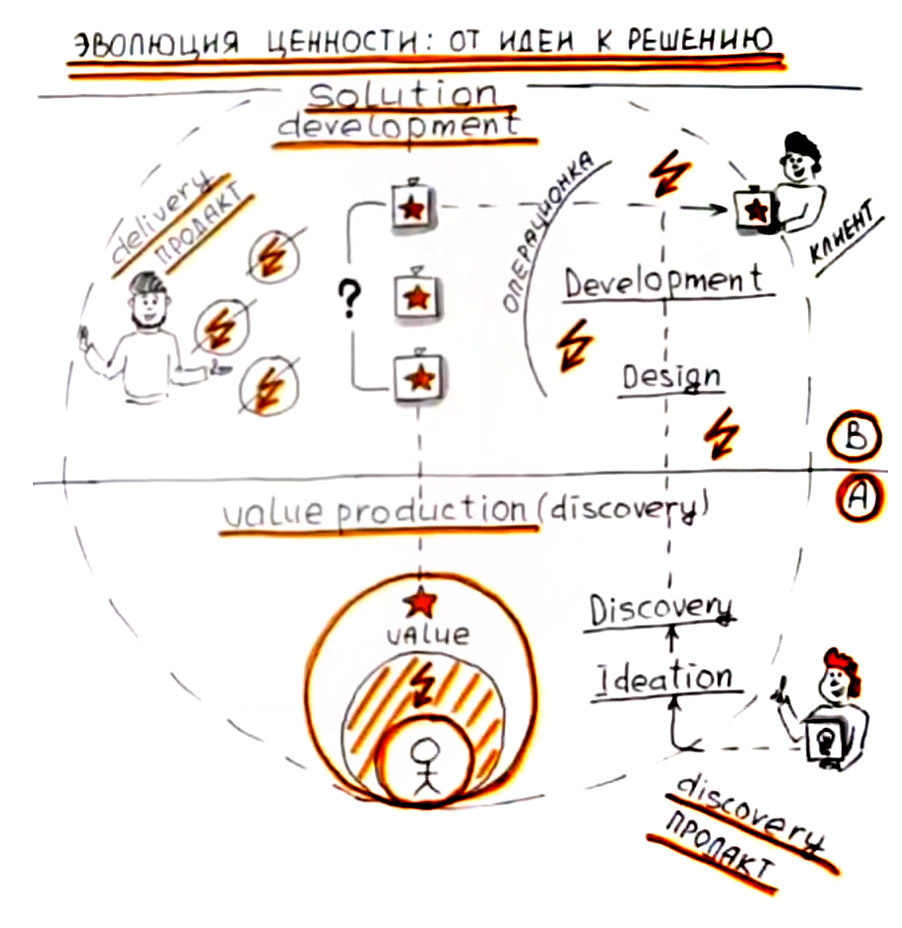 ЭВОЛЮЦИЯ ЦЕННОСТИ: ОТ ИДЕИ К РЕШЕНИЮ
solution
development
delivery
ПРОДАКТ
?
ОПЕРАЦИОНКА
КЛИЕНТ
Development
Design
B
A
value production (discovery)
VALUE
Discovery
Ideation
discovery
ПРОДАКТ